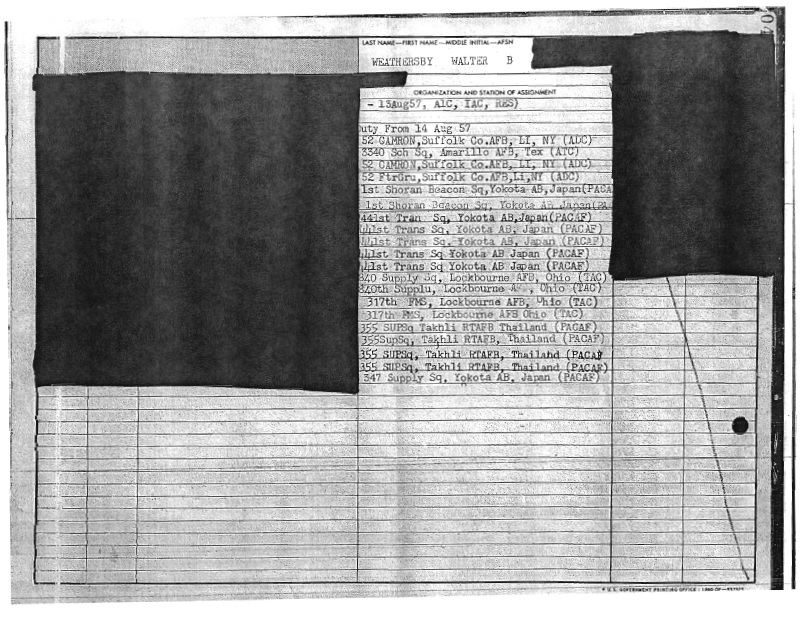 LAST NAME—FIRST NAME—MIDDLE INITIAL—AFSN
WEATHERSBY WALTER B
ORGANIZATION AND STATION OF ASSIGNMENT
- 13Aug57, A1C, IAC, RES)
uty From 14 Aug 57
52 CAMRON,Suffolk Co.AFB, LI, NY (ADC)
3340 Sch Sq, Amarillo AFB, Tex (ATC)
52 CAMRON,Suffolk Co.AFB, LI, NY (ADC)
52 FtrGru,Suffolk Co.AFB,Li,NY (ADC)
1st Shoran Beacon Sq,Yokota AB,Japan(PACA
1st Shoran Beacon Sq, Yokota AB Japan(PA
441st Tran Sq, Yokota AB,Japan(PACAF)
441st Trans Sq, Yokota AB, Japan (PACAF)
441st Trans Sq, Yokota AB, Japan (PACAF)
441st Trans Sq Yokota AB Japan (PACAF)
441st Trans Sq Yokota AB Japan (PACAF)
840 Supply Sq, Lockbourne AFB, Ohio (TAC)
840th Supplu, Lockbourne AF , Ohio (TAC)
317th FMS, Lockbourne AFB, Ohio (TAC)
317th FMS, Lockbourne AFB Ohio (TAC)
355 SUPSq Takhli RTAFB Thailand (PACAF)
355SupSq, Takhli RTAFB, Thailand (PACAF)
355 SUPSq, Takhli RTAFB, Thailand (PACAF
355 SUPSq, Takhli RTAFB, Thailand (PACAF)
347 Supply Sq, Yokota AB, Japan (PACAF)
* U.S. GOVERNMENT PRINTING OFFICE : 1960 OF—